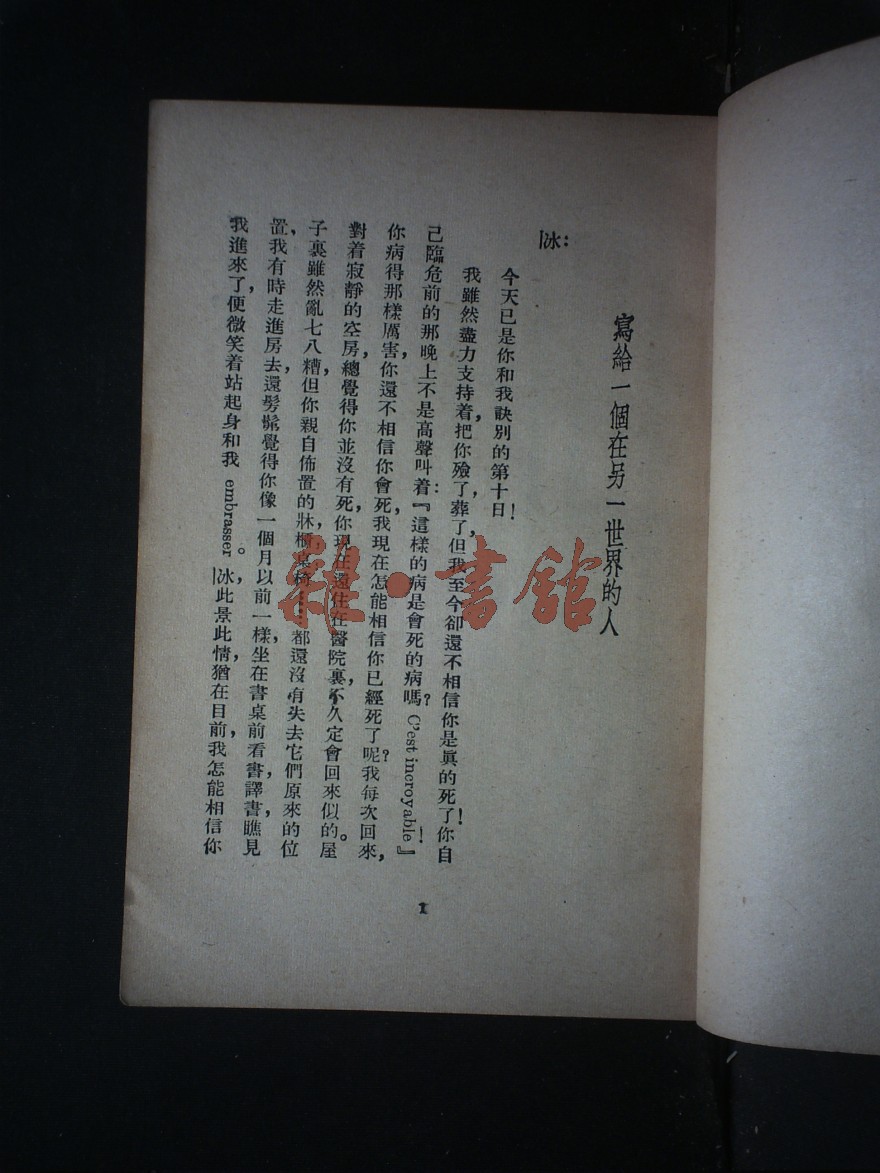 寫給一個在另一世界的人
冰：
今天已是你和我訣別的第十日！
我雖然盡力支持着，把你殮了，葬了，但我至今卻還不相信你是眞的死了！你自
己臨危前的那晚上不是高聲叫着：『這樣的病是會死的病嗎？C'est incroyable！』
你病得那樣厲害，你還不相信你會死，我現在怎能相信你已經死了呢？我每次回來，
對着寂靜的空房，總覺得你並沒有死，你現在還住在醫院裏，不久定會回來似的。屋
子裏雖然亂七八糟，但你親自佈置的牀，櫃，桌，椅……都還沒有失去它們原來的位
置，我有時走進房去，還髣髴覺得你像一個月以前一樣，坐在書桌前看書，譯書，瞧見
我進來了，便微笑着站起身和我 embrasser。冰，此景此情，猶在目前，我怎能相信你
1
雜·書館